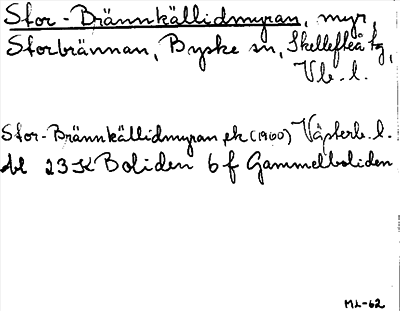 Stor-Brännkällidmyran, myr,
Storbrännan, Byske sn, Skellefteå tg,
Vb. l.
Stor-Brännkällidmyran ek (1960) Västerb. l.
bl 23 K Boliden 6 f Gammelboliden
ML-62